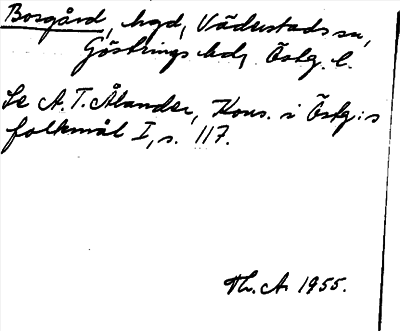 Borgård, hgd, Väderstads sn,
Göstrings hd, Östg. l.
Se A. T. Ålander, Kons. i Östg:s
folkmål I, s. 117.
Th. A. 1955.